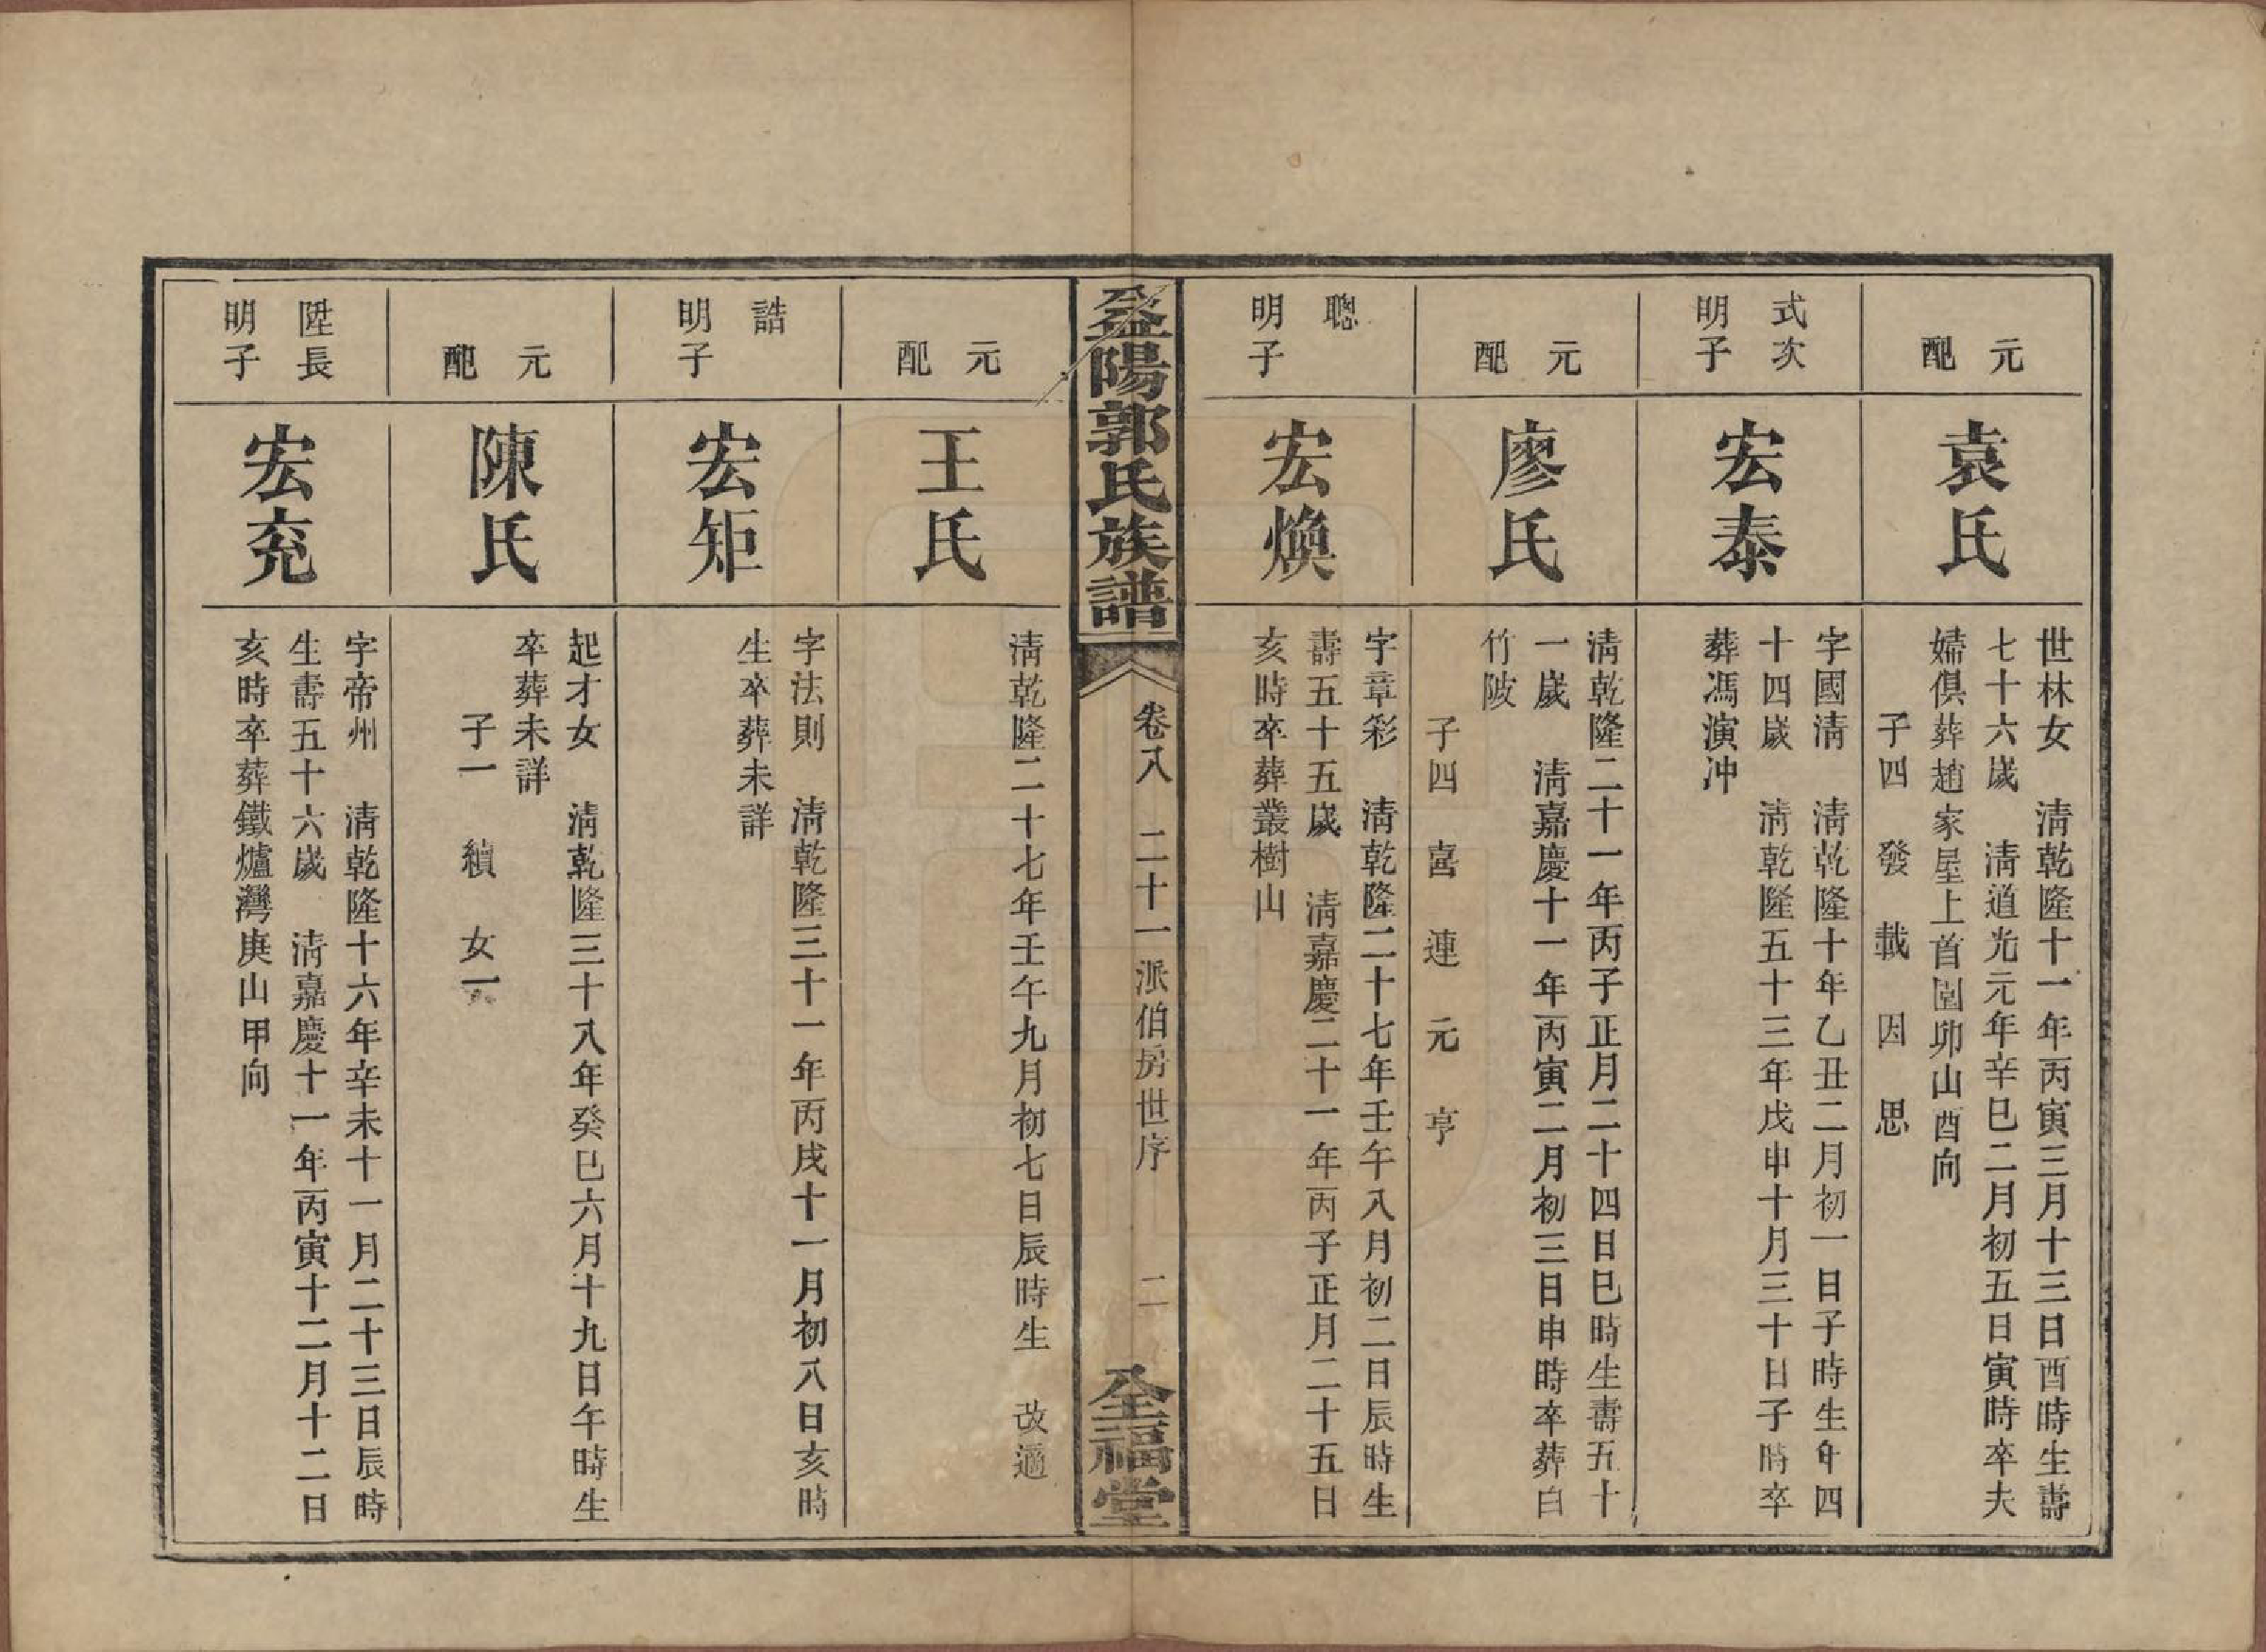 元
配
袁氏
世林女　淸乾隆十一年丙寅三月十三日酉時生壽
七十六歲　淸道光元年辛巳二月初五日寅時卒夫
婦俱葬趙家屋上首園卯山酉向
子四　發　載　因　思
式次
明子
宏泰
字國淸　淸乾隆十年乙丑二月初一日子時生年四
十四歲　淸乾隆五十三年戊申十月三十日子時卒
葬馮演冲
元
配
廖氏
淸乾隆二十一年丙子正月二十四日巳時生壽五十
一歲　淸嘉慶十一年丙寅二月初三日申時卒葬白
竹陂
子四　喜　連　元　亨
聰
明子
宏煥
字章彩　淸乾隆二十七年壬午八月初二日辰時生
壽五十五歲　淸嘉慶二十一年丙子正月二十五日
亥時卒葬叢樹山
益陽郭氏族譜
卷八　二十一派伯房世序　二
全福堂
元
配
王氏
淸乾隆二十七年壬午九月初七日辰時生　改適
誥
明子
宏矩
字法則　淸乾隆三十一年丙戌十一月初八日亥時
生卒葬未詳
元
配
陳氏
起才女　淸乾隆三十八年癸巳六月十九日午時生
卒葬未詳
子一　續　女一
陞長
明子
宏充
字帝州　淸乾隆十六年辛未十一月二十三日辰時
生壽五十六歲　淸嘉慶十一年丙寅十二月十二日
亥時卒葬鐵爐灣庚山甲向